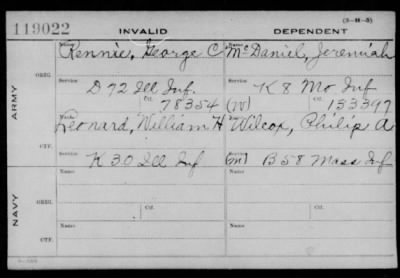 119022 INVALID DEPENDENT (3-H-5)
ARMY
ORIG.
Name Name
Rennie, George C McDaniel, Jeremiah
Service Service
D 72 Ill Inf. K 8 Mo Inf
Ctf. 78354 (W) Ctf. 133397
CTF.
Name Name
Leonard, William H Wilcox, Philip A
Service Service
K 30 Ill Inf (M) B 58 Mass Inf
NAVY
ORIG.
Name Name
Ctf. Ctf.
CTF.
Name Name